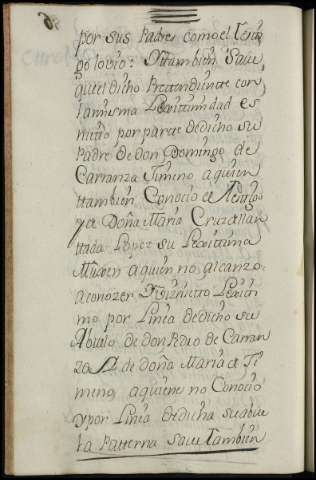 por sus Padres como el testi
go lo vio: Ottambien Save,
que el dicho Pretendiente con
la misma Lexittimidad es
nietto por parte de dicho su
Padre de don Domingo de
Carranza Jimeno a quien
ttambien Conocio el testigo
y de Doña Maria Cruz
Lopez su Lexittima
Muxer a quien no alcanzo
a conozer Visnietto Lexiti
mo por Linea de dicho su
Abuelo de don Pedro de Carran
za y de doña Maria de Ji
meno a quienes no Conocio
y por Linea de dicha su abue
la Patterna Save tambien